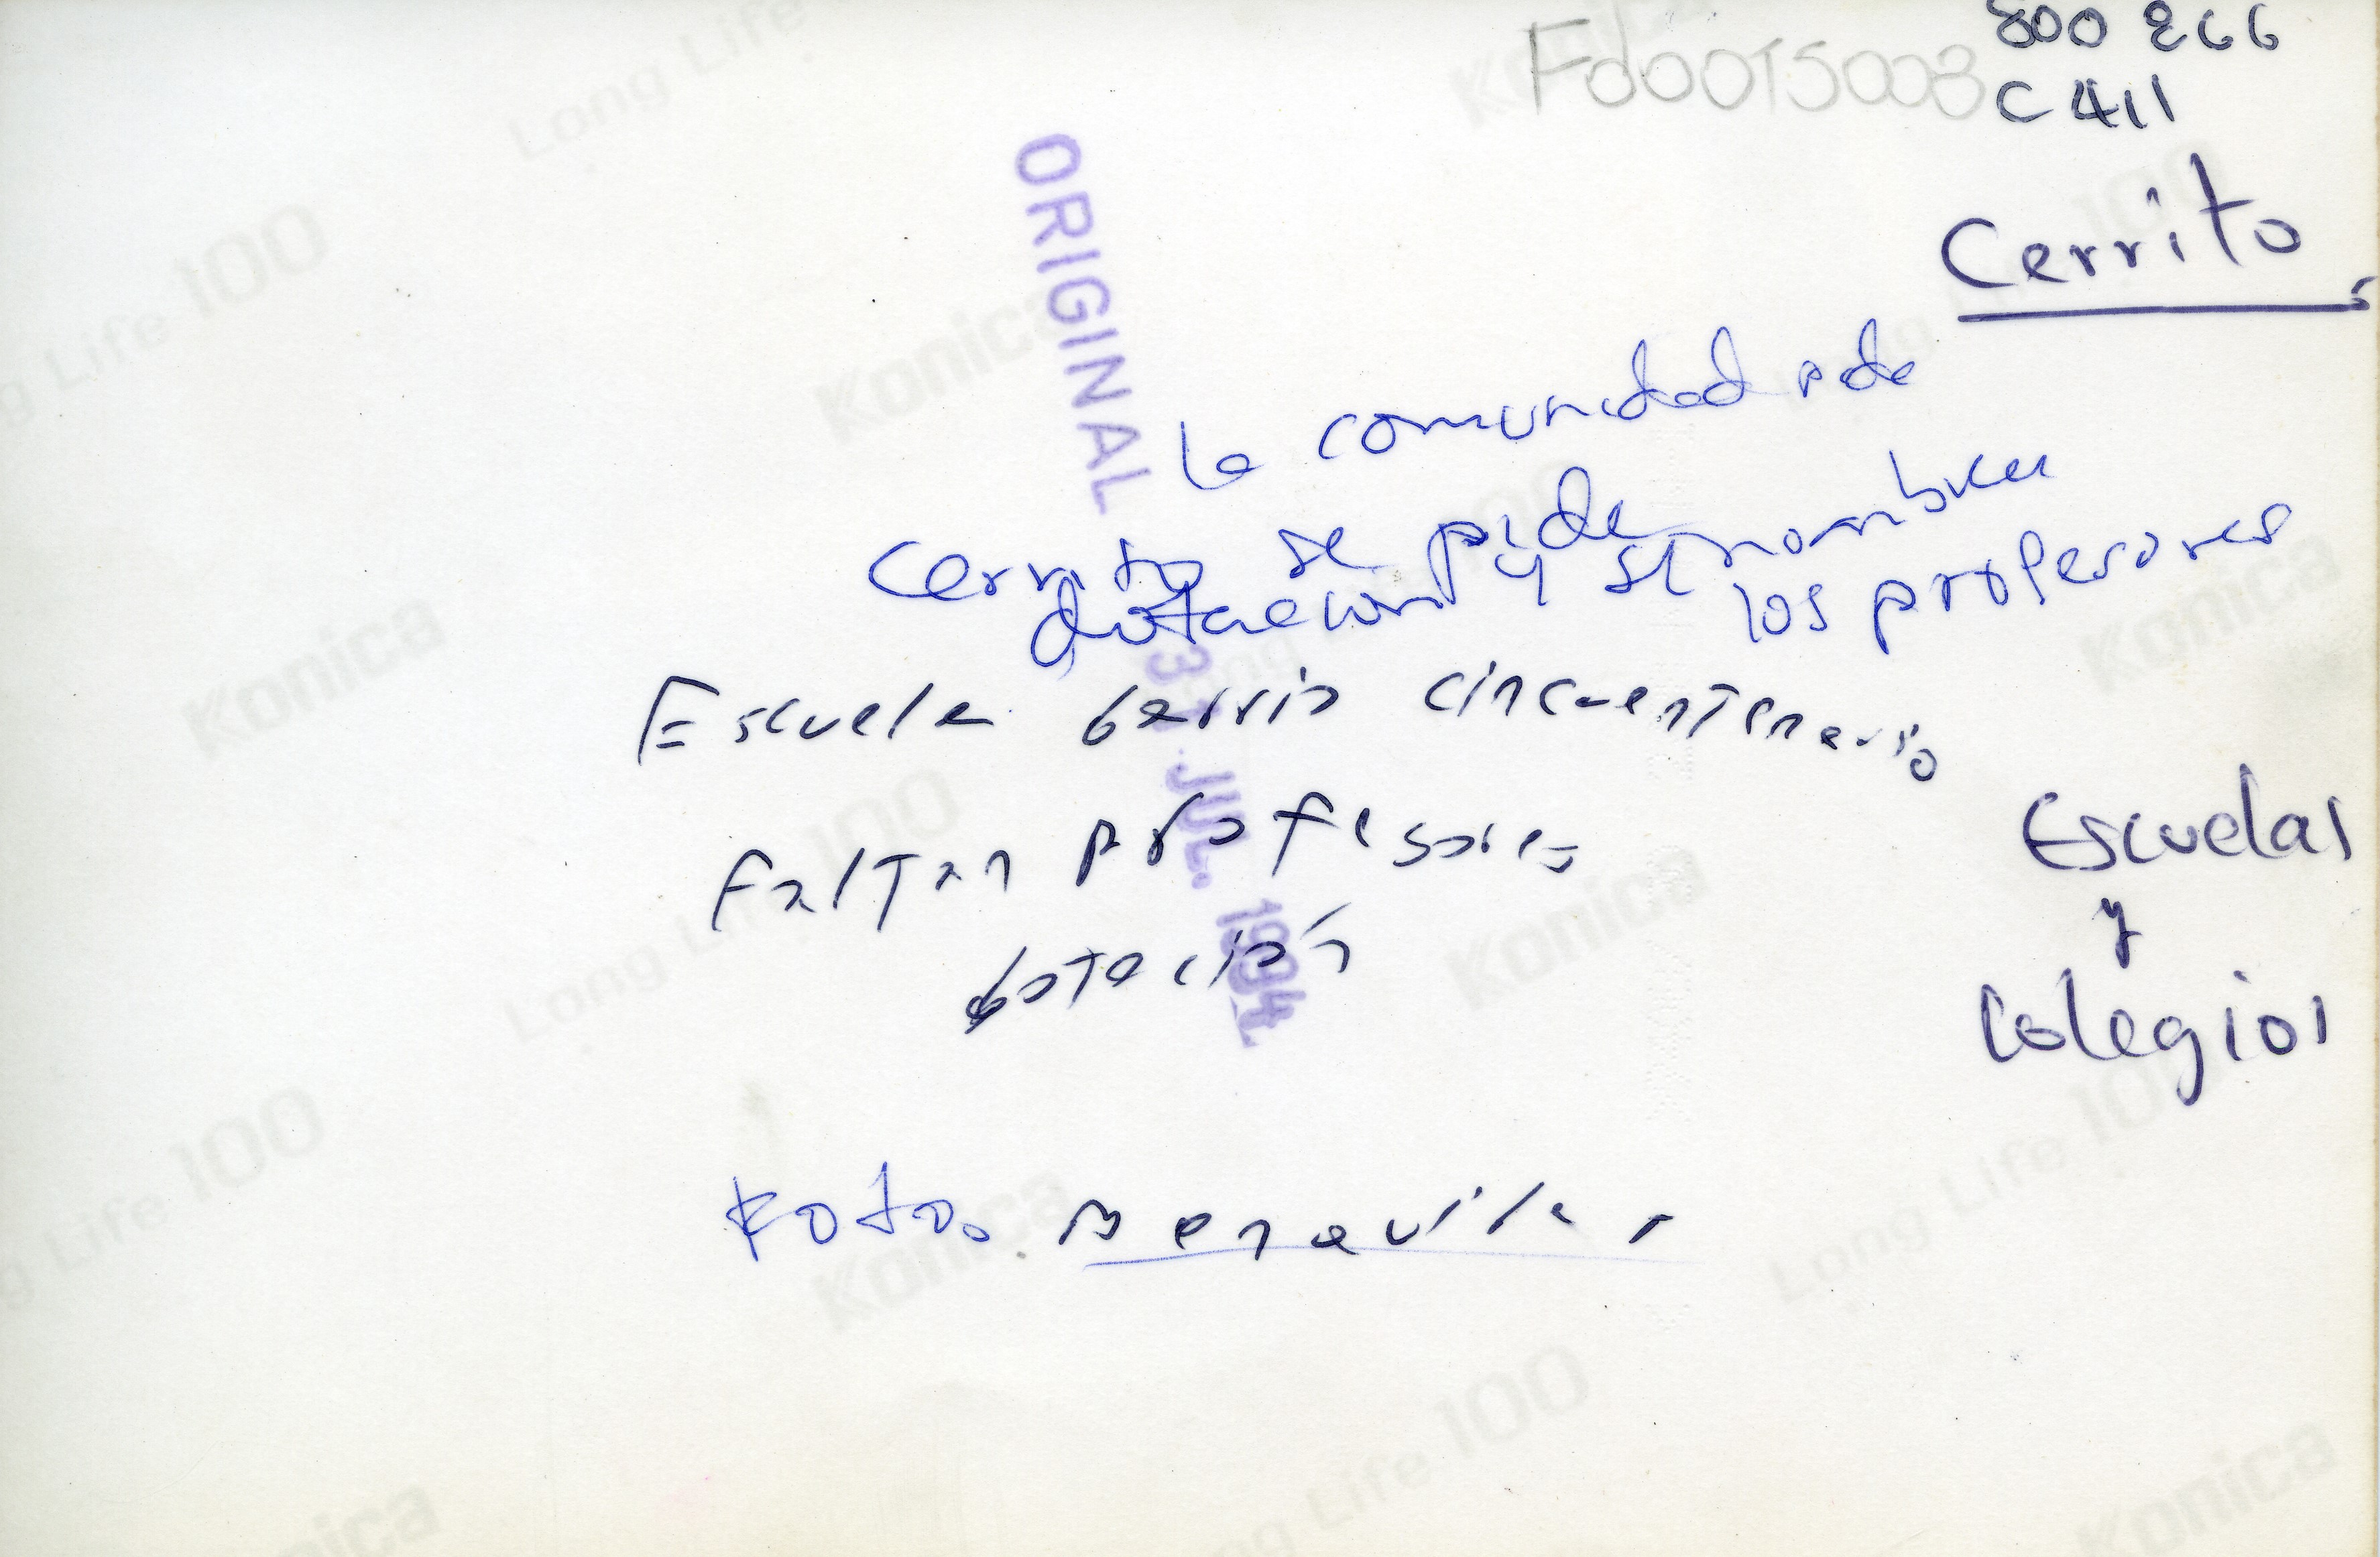 800 266
Fd0015003
C411
Cerrito
ORIGINAL
la comunidad de
Cerrito se pide
dotacion y se nombren
los profesores
31 JUL. 1994
Escuela barrio cincuentenario
Faltan profesores
dotación
Escuelas
y
Colegios
Foto. Benavides
Konica
Long Life 100